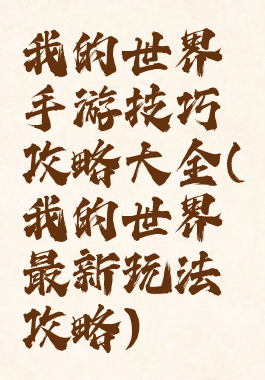 我的世界
手游技巧
攻略大全(
我的世界
最新玩法
攻略)